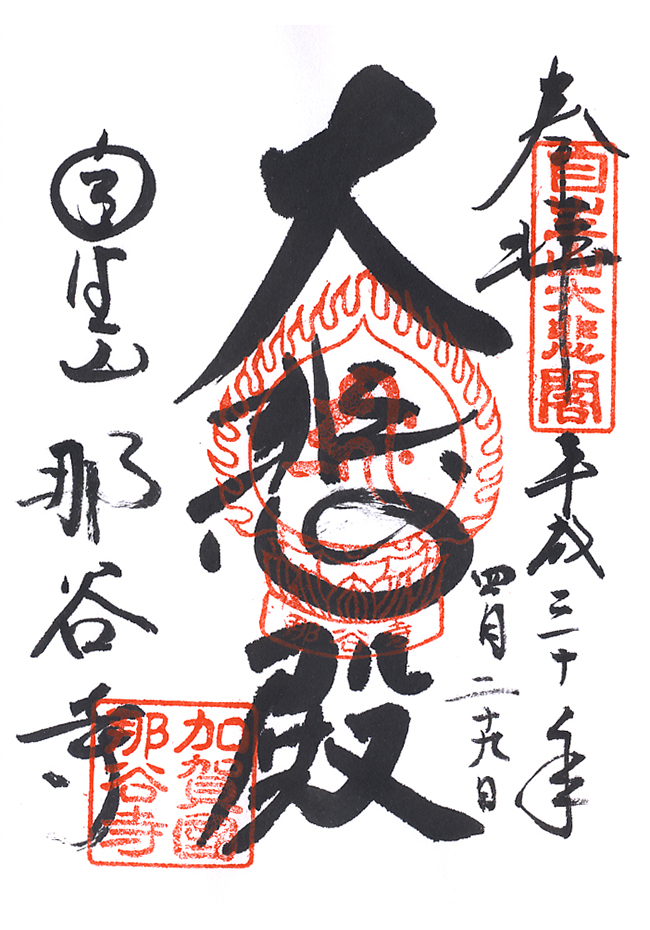 奉拝
自生山大悲閣
平成三十年
四月二十九日
大悲殿
那谷寺
自生山
那谷寺
加賀國
那谷寺